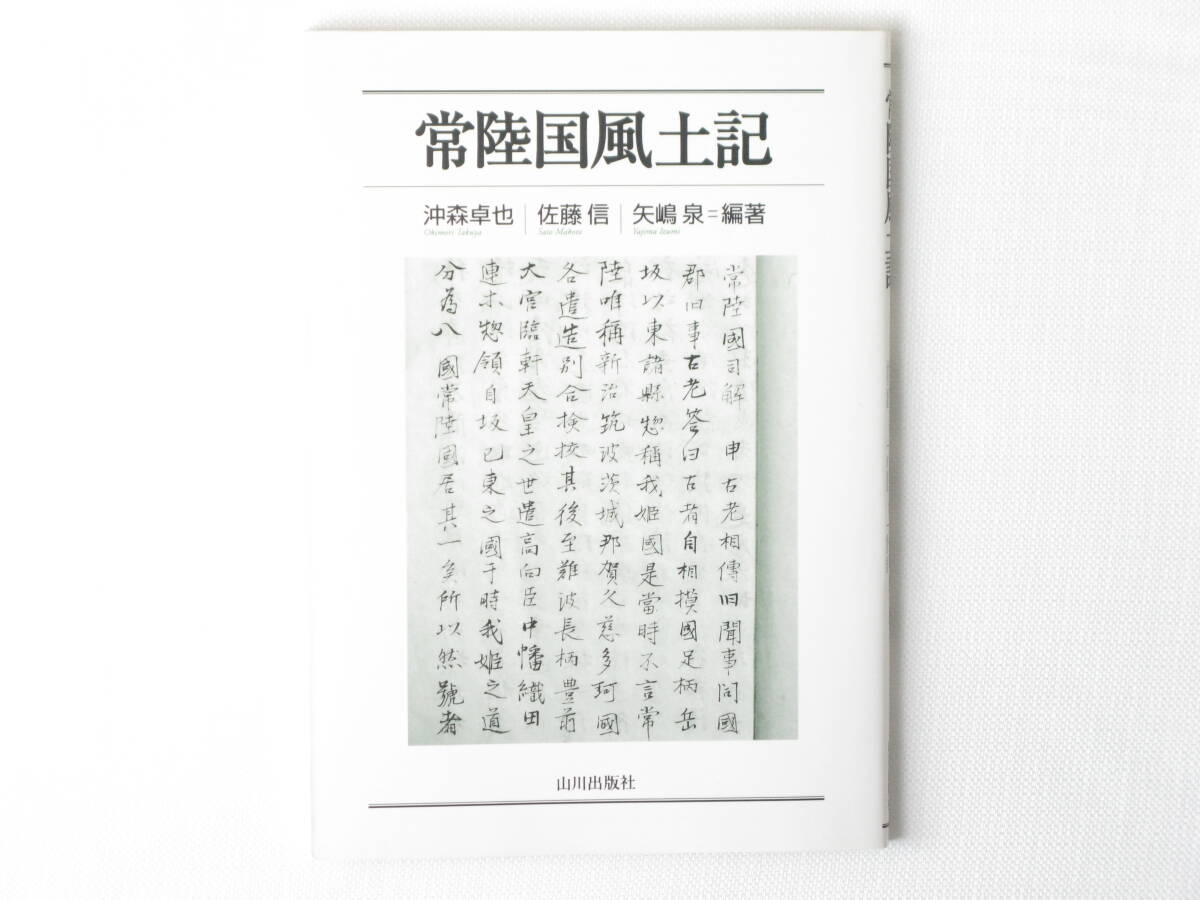 常陸国風土記
沖森卓也
Okimori Takuya
佐藤 信
Sato Makoto
矢嶋 泉=編著
Yajima Izumi
常陸國司解 申古老相傳旧聞事問國
郡旧事古老答曰古者自相摸國足柄岳
坂以東諸縣惣稱我姫國是當時不言常
陸唯稱新治筑波茨城那賀久慈多珂國
各遣造別令検挍其後至難波長柄豊前
大宮臨軒天皇之世遣高向臣中幡織田
連木惣領自坂已東之國于時我姫之道
分為八國常陸國居其一矣所以然號者
山川出版社
常陸国風土記